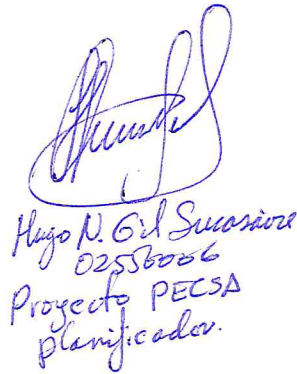 Hugo N. Gil Sucasaire
02556066
Proyecto PECSA
planificador.